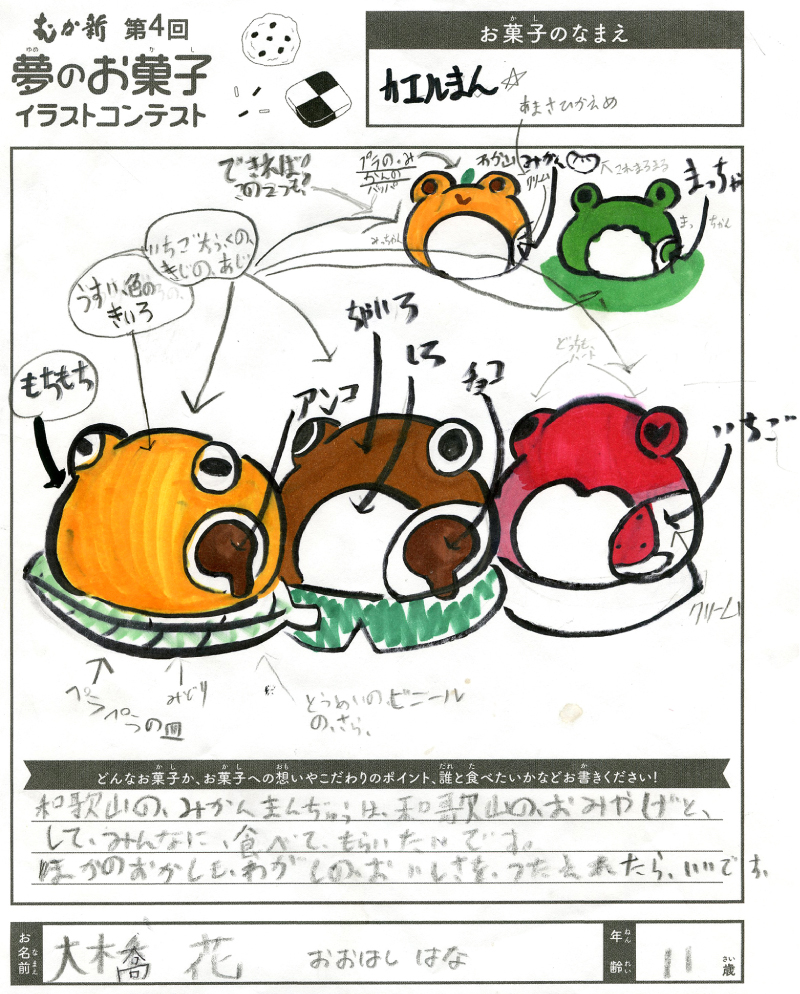 むか新 第4回
夢のお菓子
イラストコンテスト
お菓子のなまえ
カエルまん☆
あまさひかえめ
できれば!
この2つも?
プラの、み
かんの
ハッパ
わか山 みかん
クリーム
まっちゃ
いちご
きじの、あじ
うすい、色の
きいろ
もちもち
アンコ
ちゃいろ
しろ
チョコ
どっちも、
ハート
いちご
クリーム
ペラ
ペラの皿
みどり
とうめいの、ビニール
の、さら、
どんなお菓子か、お菓子への想いやこだわりのポイント、誰と食べたいかなどお書きください!
和歌山の、みかんまんぢゅうは、和歌山の、おみやげと、
して、みんなに、食べて、もらいたいです。
ほかのおかしも、わがしの、おいしさを、つたえれたら、いいです。
お名前
大橋 花 おおはし はな
年齢
11
歳